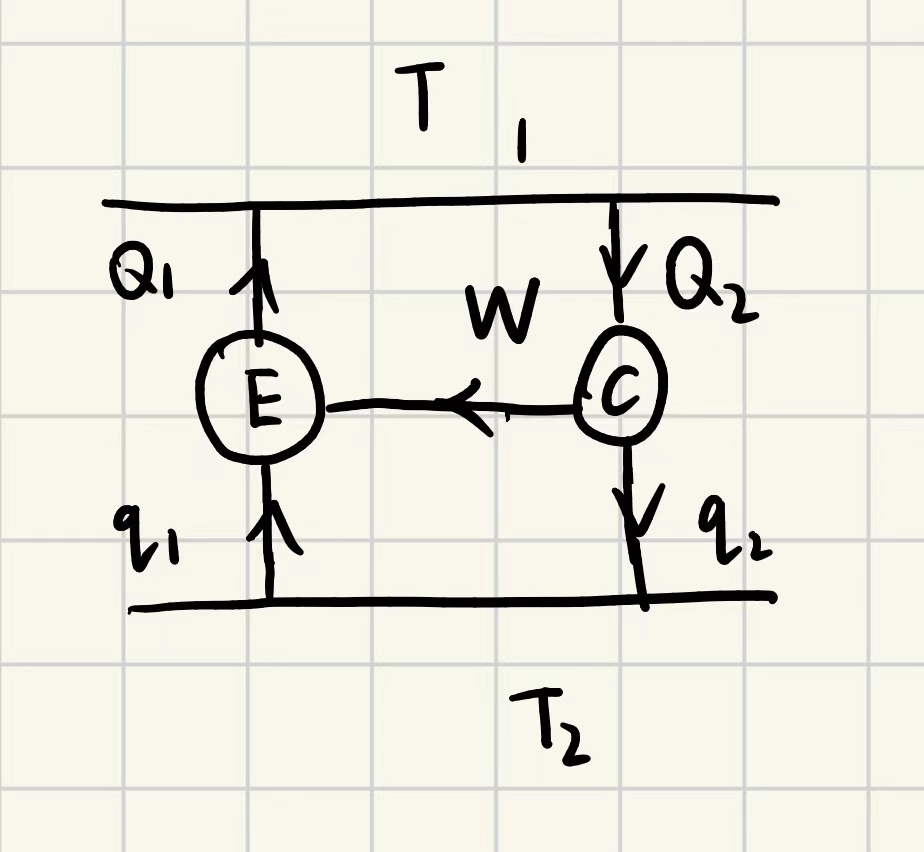 T 1
Q1 W Q2
E C
q1 q2
T2